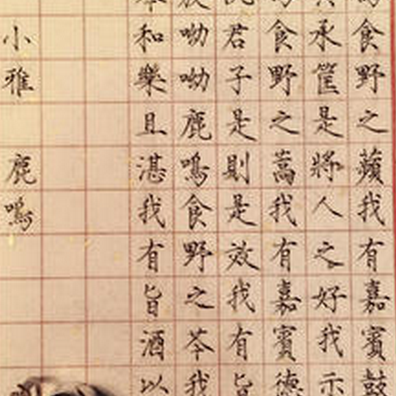 食野之蘋我有嘉賓鼓
承筐是將人之好我示
食野之蒿我有嘉賓德
君子是則是效我有旨
呦呦鹿鳴食野之芩我
和樂且湛我有旨酒以
小雅 鹿鳴